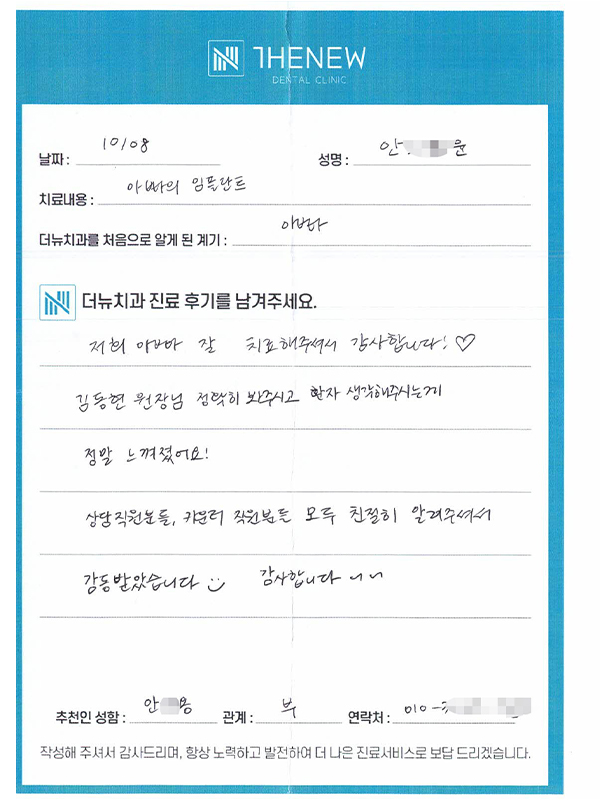 THENEW
DENTAL CLINIC
날짜 : 10/08 성명 : 안 윤
치료내용 : 아빠의 임플란트
더뉴치과를 처음으로 알게 된 계기 : 아빠
더뉴치과 진료 후기를 남겨주세요.
저희 아빠 잘 치료해주셔서 감사합니다! ♡
김동현 원장님 정확히 봐주시고 환자 생각해주시는게
정말 느껴졌어요!
상담직원분들, 카운터 직원분들 모두 친절히 알려주셔서
감동받았습니다 감사합니다 ~~
추천인 성함 : 안 용 관계 : 부 연락처 : 010 -
작성해 주셔서 감사드리며, 항상 노력하고 발전하여 더 나은 진료서비스로 보답 드리겠습니다.